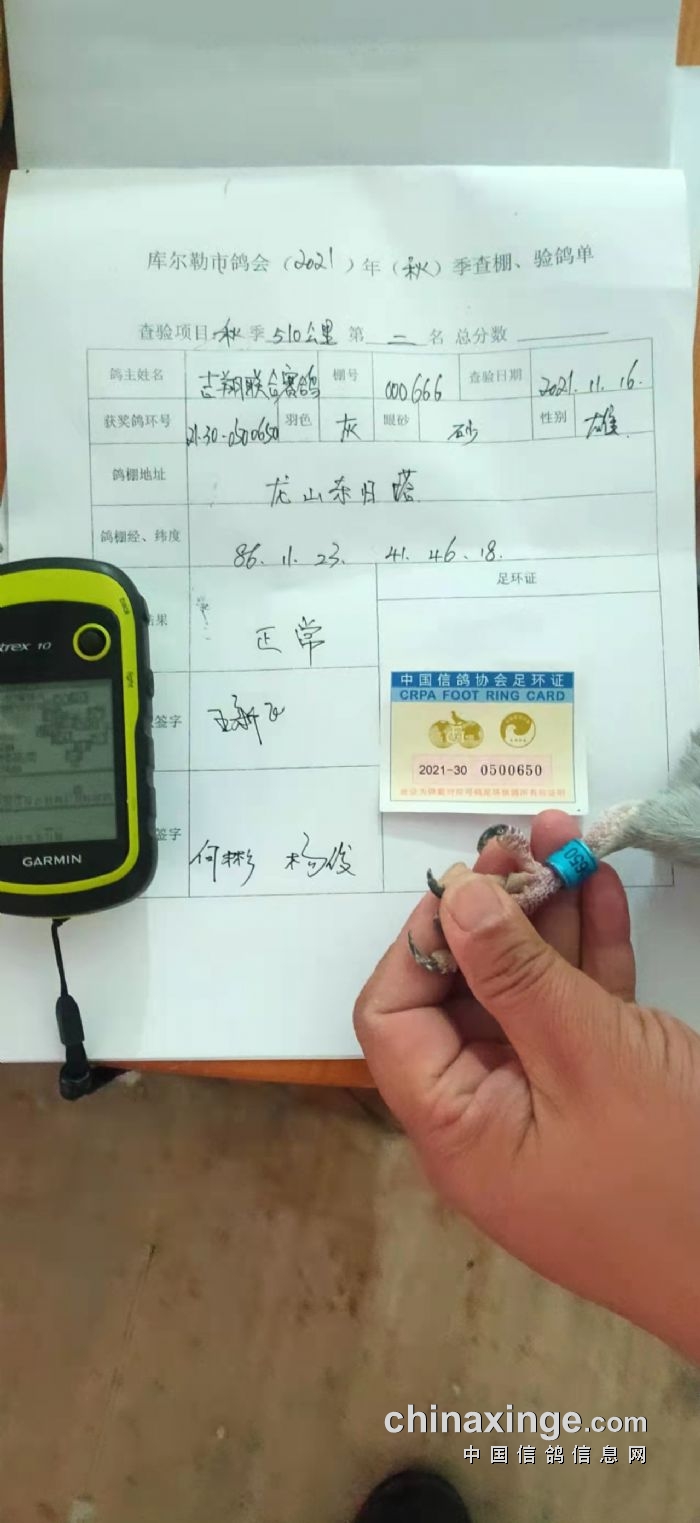 库尔勒市鸽会（2021）年（秋）季查棚、验鸽单
查验项目:秋季 510公里 第 二 名 总分数
鸽主姓名 吉翔联合赛鸽 棚号 000666 查验日期 2021.11.16.
获奖鸽环号 21-30-0500650 羽色 灰 眼砂 砂 性别 雄.
鸽棚地址 龙山东归塔
鸽棚经、纬度 86.11.23. 41.46.18.
果 正常 足环证
签字
签字 何彬 杨俊
中国信鸽协会足环证
CRPA FOOT RING CARD
2021-30 0500650
trex 10
light
GARMIN
650
chinaxinge.com
中国信鸽信息网